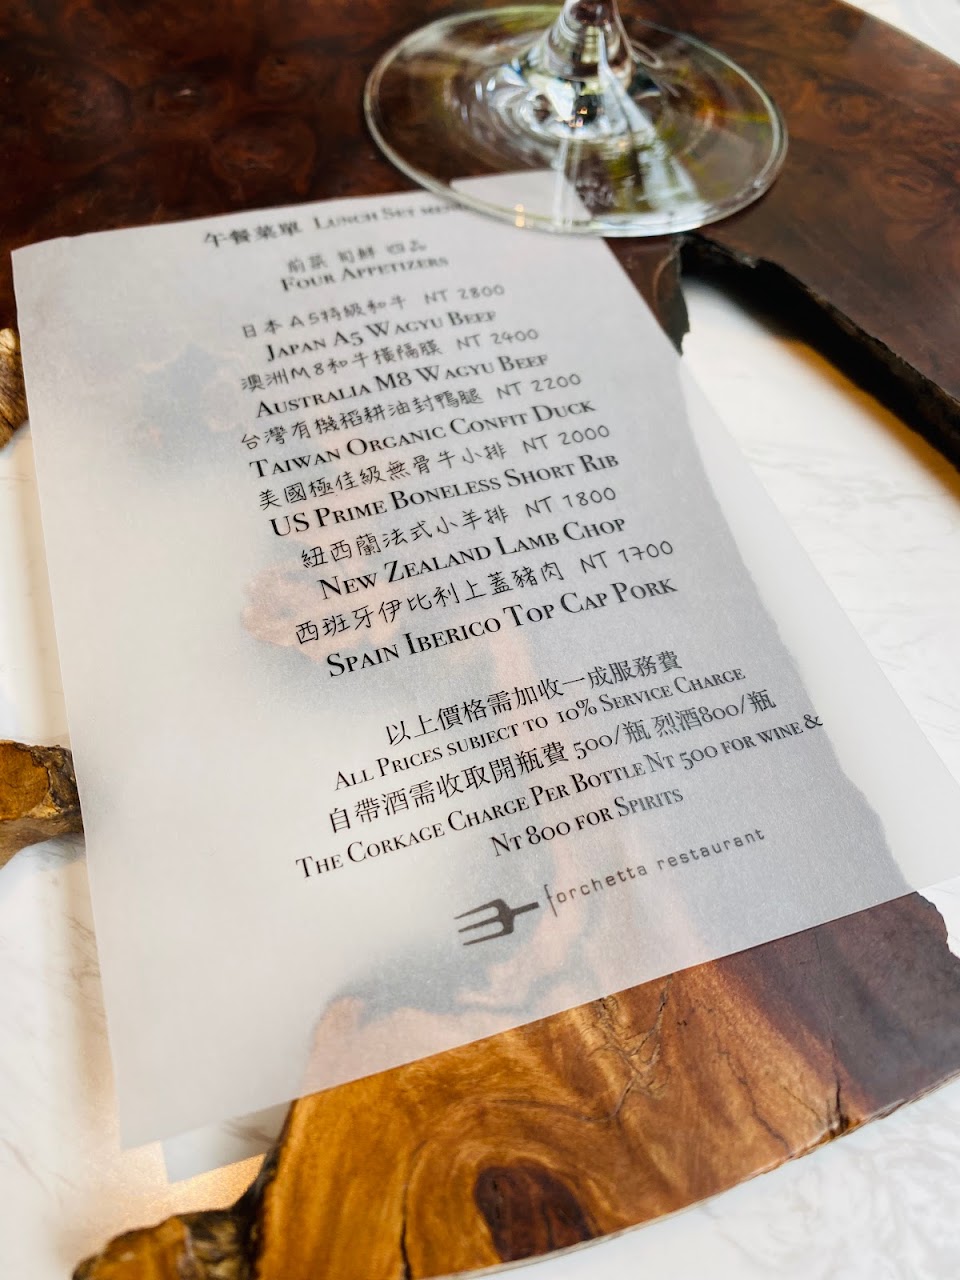 午餐菜單 LUNCH SET MENU
前菜 旬鮮 四品
FOUR APPETIZERS
日本A5特級和牛 NT 2800
JAPAN A5 WAGYU BEEF
澳洲M8和牛橫隔膜 NT 2400
AUSTRALIA M8 WAGYU BEEF
台灣有機稻耕油封鴨腿 NT 2200
TAIWAN ORGANIC CONFIT DUCK
美國極佳級無骨牛小排 NT 2000
US PRIME BONELESS SHORT RIB
紐西蘭法式小羊排 NT 1800
NEW ZEALAND LAMB CHOP
西班牙伊比利上蓋豬肉 NT 1700
SPAIN IBERICO TOP CAP PORK
以上價格需加收一成服務費
ALL PRICES SUBJECT TO 10% SERVICE CHARGE
自帶酒需收取開瓶費 500/瓶 烈酒800/瓶
THE CORKAGE CHARGE PER BOTTLE NT 500 FOR WINE &
NT 800 FOR SPIRITS
forchetta restaurant